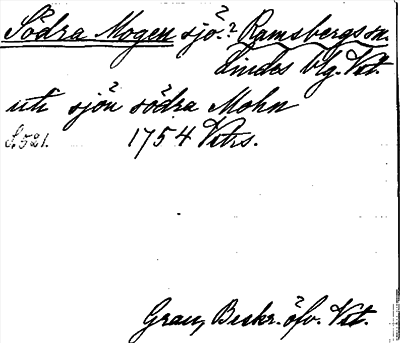 Södra Mogen sjö.? Ramsbergs sn.
Lindes blg. Vst.
uti sjön södra Mohn
S. 521. 1754 Vtrs.
Grau, Beskr. öfv. Vst.